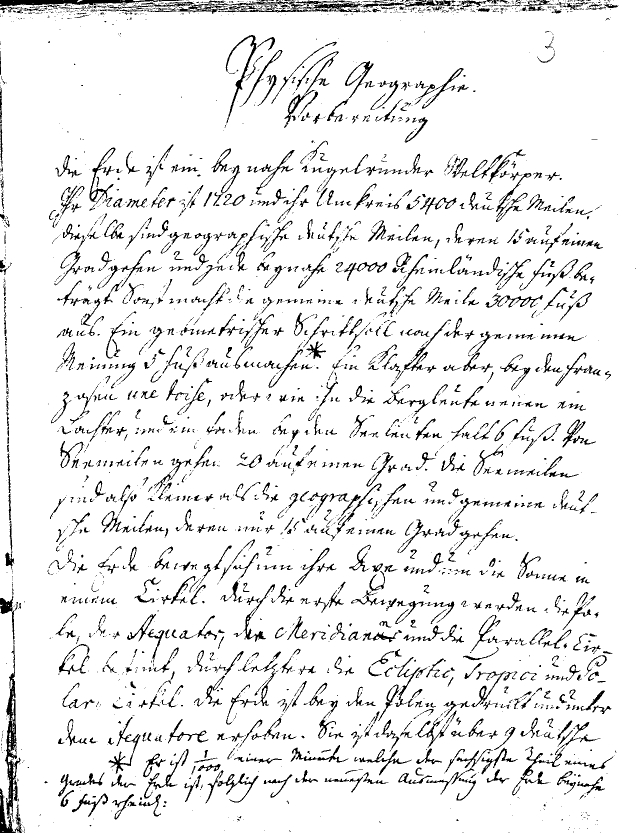 3
Physische Geographie.
Vorbereitung
Die Erde ist ein beynahe Kugelrunder Weltkörper.
Ihr Diameter ist 1720 und ihr Umkreis 5400 deutsche Meilen.
Dieselbe sind geographische deutsche Meilen, deren 15 auf einen
Grad gehen und jede beynahe 24000 Rheinländische Fuß be-
trägt Sonst macht die gemeine deutsche Meile 30000 Fuß
aus. Ein geometrischer Schritt soll nach der gemeinen
Meinung 5 Fuß ausmachen.* Ein Klafter aber, bey den Fran-
zosen une toise, oder wie ihn die Bergleute nennen ein
Lachter, und ein Faden bey den Seeleuten hält 6 Fuß. Von
Seemeilen gehen 20 auf einen Grad. Die Seemeilen
sind also Kleiner als die geographischen und gemeine deut-
sche Meilen, deren nur 15 auf einen Grad gehen.
Die Erde bewegt sich um ihre Axe und um die Sonne in
einem Cirkel. Durch die erste Bewegung werden die Po-
le, der Aequator, die Meridianen und die Parallel-Cir-
kel bestimt, durch letztere die Ecliptic, Tropici und Po-
lar-Cirkel. Die Erde ist bey den Polen gedruckt und unter
dem Aequatore erhoben. Sie ist daselbst über 9 deutsche
* Er ist 1/1000 einer Minute welche der sechsigste Theil eines
Grades der Erde ist, folglich nach der neuesten Ausmessung der Erde beynahe
6 Fuß rheinl: